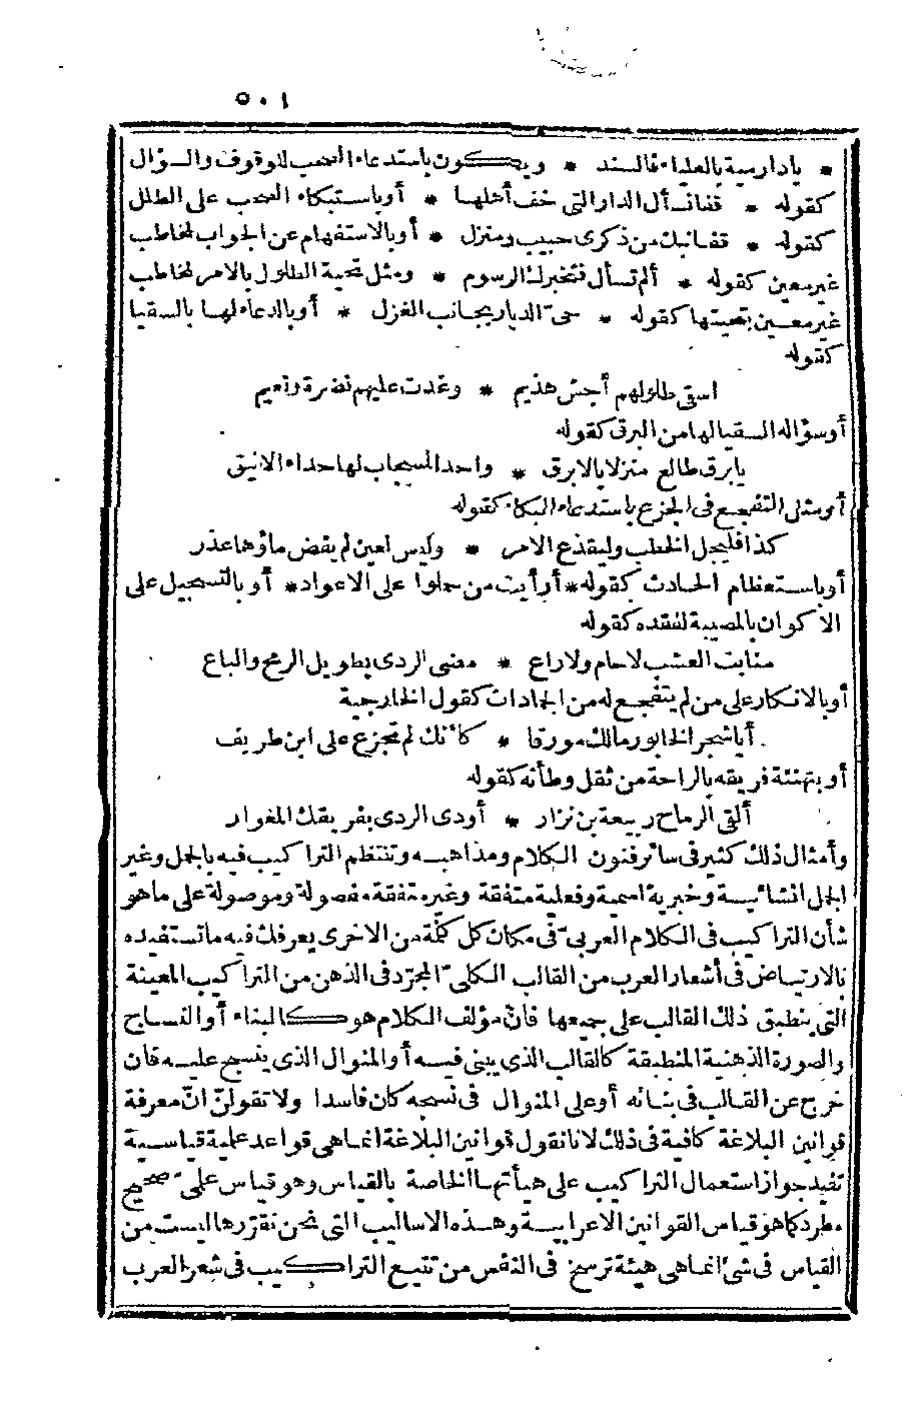 ٥٠١
* يادارمية بالعلياء فالسند * ويكون باستدعاء الصحب للوقوف والسؤال
كقوله * قفا نسأل الدار التي خف أهلها * أو باستبكاء الصحب على الطلل
كقوله * قفا نبك من ذكرى حبيب ومنزل * أو بالاستفهام عن الجواب لمخاطب
غير معين كقوله * ألم تسأل فتخبرك الرسوم * ومثل تحية الطلول بالامر لمخاطب
غير معين بتحيتها كقوله * حىّ الديار بجانب الغزل * أو بالدعاء لها بالسقيا
كقوله
اسقى طلولهم أجش هذيم * وغدت عليهم نضرة ونعيم
أو سؤاله السقيا لها من البرق كقوله
يا برق طالع منزلا بالابرق * واحد السحاب لها حداء الاينق
أو مثل التفجع فى الجزع باستدعاء البكاء كقوله
كذا فليجل الخطب وليفدح الامر * وليس لعين لم يفض ماؤها عذر
أو باستعظام الحادث كقوله * أرأيت من حملوا على الاعواد * أو بالتسجيل على
الاكوان بالمصيبة لفقده كقوله
منابت العشب لا حام ولا راع * مضى الردى بطويل الرمح والباع
أو بالانكار على من لم يتفجع له من الجمادات كقول الخارجية
أيا شجر الخابور مالك مورقا * كأنك لم تجزع على ابن طريف
أو بتهنئة فريقه بالراحة من ثقل وطأته كقوله
ألقى الرماح ربيعة بن نزار * أودى الردى بفريقك المغوار
وأمثال ذلك كثير فى سائر فنون الكلام ومذاهبه وتنتظم التراكيب فيه بالجمل وغير
الجمل انشائية وخبرية اسمية وفعلية متفقة وغير متفقة مفصولة وموصولة على ما هو
شأن التراكيب فى الكلام العربىّ فى مكان كل كلمة من الاخرى يعرفك فيه ما تستفيده
بالارتياض فى أشعار العرب من القالب الكلىّ المجرّد فى الذهن من التراكيب المعينة
التى ينطبق ذلك القالب على جميعها فانّ مؤلف الكلام هو كالبناء أو النساج
والصورة الذهنية المنطبقة كالقالب الذى يبنى فيه أو المنوال الذى ينسج عليه فان
خرج عن القالب فى بنائه أو على المنوال فى نسجه كان فاسدا ولا تقولنّ انّ معرفة
قوانين البلاغة كافية فى ذلك لانا نقول قوانين البلاغة انما هى قواعد علمية قياسية
تفيد جواز استعمال التراكيب على هيأتها الخاصة بالقياس وهو قياس علمىّ صحيح
مطرد كما هو قياس القوانين الاعرابية وهذه الاساليب التى نحن نقرّرها ليست من
القياس فى شئ انما هى هيئة ترسخ فى النفس من تتبع التراكيب فى شعر العرب